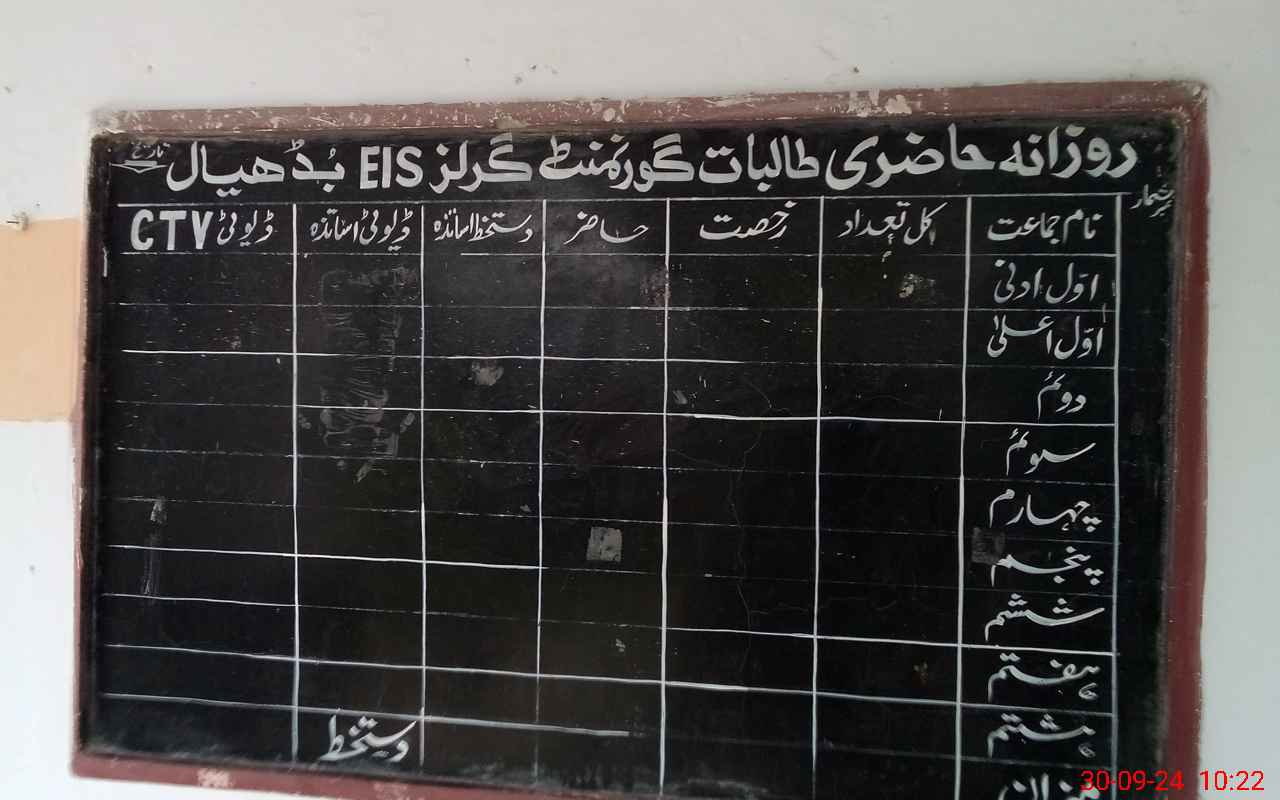 روزانہ حاضری طالبات گورنمنٹ گرلز EIS بُڈھیال
تاریخ
نمبر شمار
نام جماعت کل تعداد رخصت حاضر دستخط اساتذہ ڈیوٹی اساتذہ ڈیوٹی CTV
اوّل ادنیٰ
اوّل اعلیٰ
دوئم
سوئم
چہارم
پنجم
ششم
ہفتم
ہشتم
دستخط
میزان
30-09-24 10:22